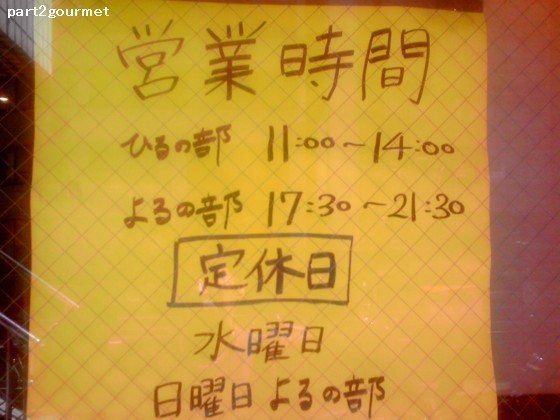 part2gourmet
営業時間
ひるの部 11:00～14:00
よるの部 17:30～21:30
定休日
水曜日
日曜日 よるの部